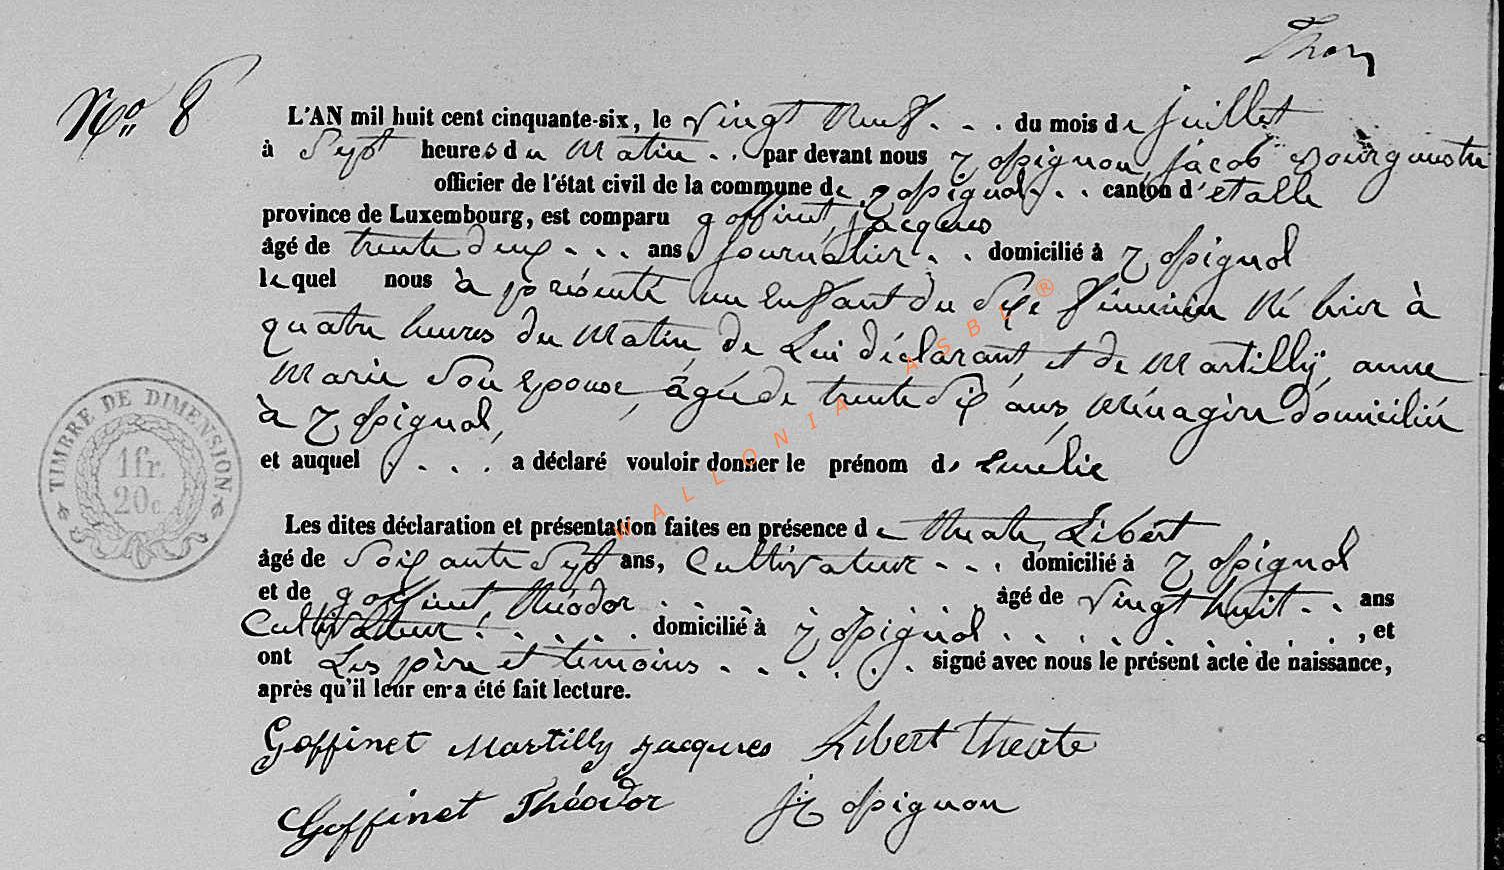 Thon
No 8
L'AN mil huit cent cinquante-six, le vingt neuf du mois de juillet
à Sept heures du Matin par devant nous jacob Bourgmestre
officier de l'état civil de la commune de canton d'étalle
province de Luxembourg, est comparu goffinet, jacques
âgé de trente deux ans, journalier domicilié à
lequel nous à présenté un Enfant du Sexe féminin Né hier à
quatre heures du Matin, de Lui déclarant, et de Martilly, anne
Marie Son Epouse, âgée de trente Six ans, Ménagère domiciliée
à
et auquel a déclaré vouloir donner le prénom d'Emélie
TIMBRE DE DIMENSION
1fr.
20c.
Les dites déclaration et présentation faites en présence de Libert
âgé de Soixante Sept ans, Cultivateur domicilié à
et de goffinet, théodor âgé de vingt huit ans
Cultivateur domicilié à , et
ont Les père et temoins signé avec nous le présent acte de naissance,
après qu'il leur en a été fait lecture.
Goffinet Martilly jacques Libert
Goffinet Théodor
WALLONIA ASBL ®